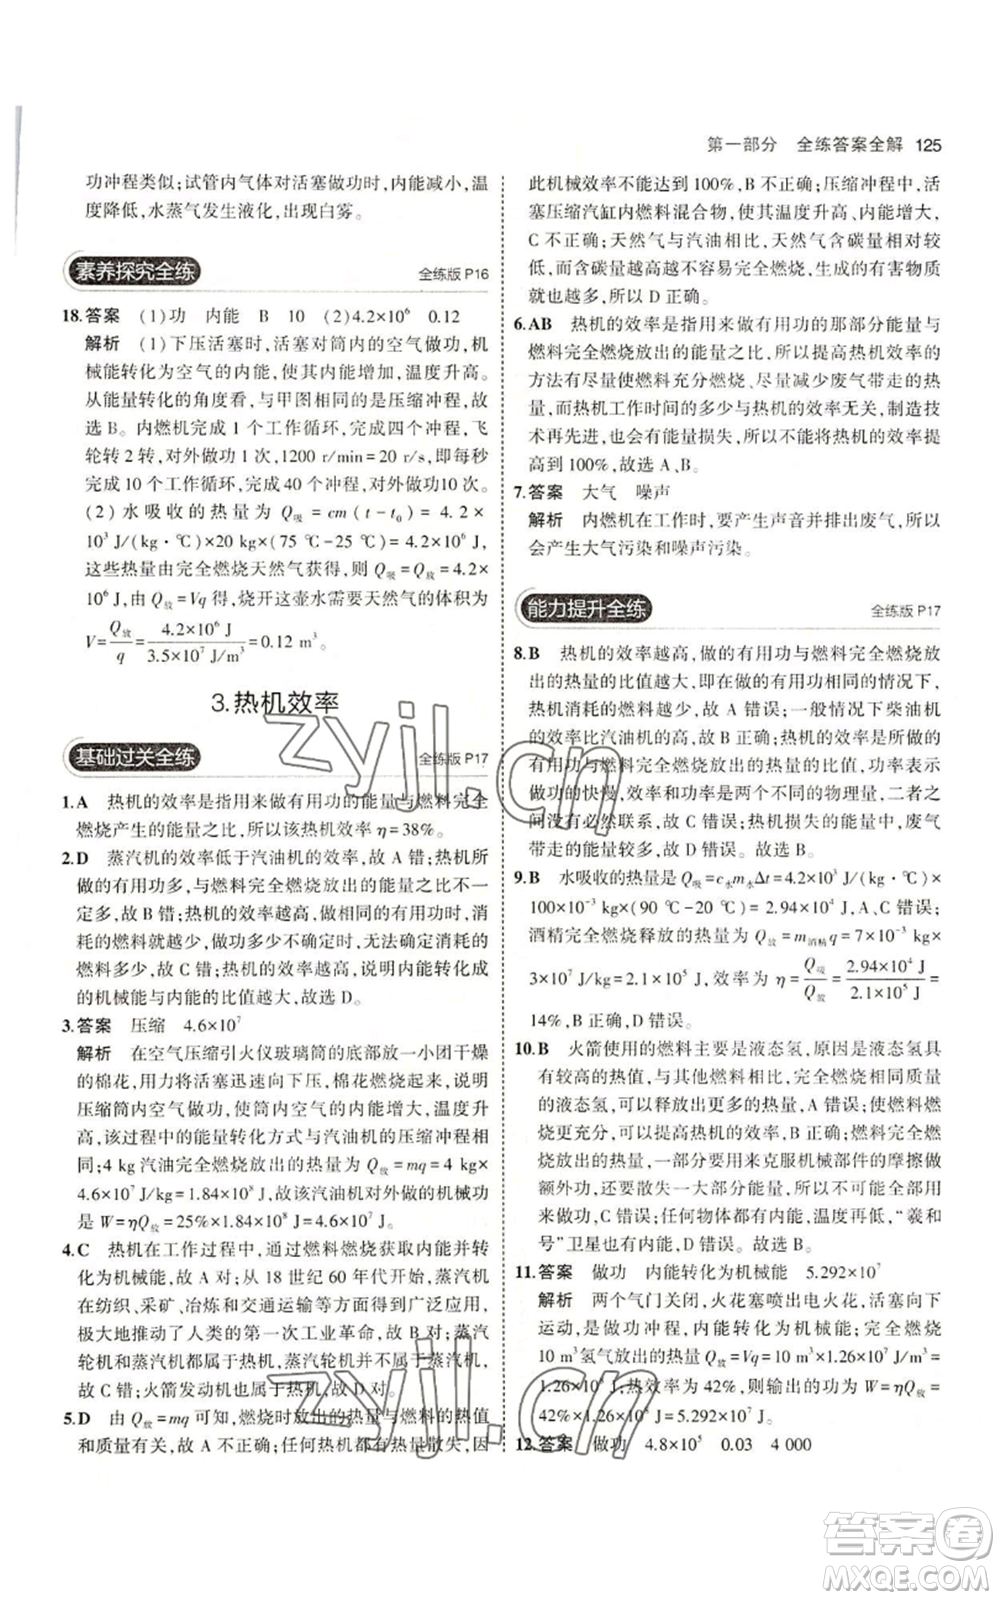 第一部分 全练答案全解 125
功冲程类似;试管内气体对活塞做功时,内能减小,温
度降低,水蒸气发生液化,出现白雾。
素养探究全练 全练版 P16
18.答案 (1)功 内能 B 10 (2)4.2×10⁶ 0.12
解析 (1)下压活塞时,活塞对筒内的空气做功,机
械能转化为空气的内能,其内能增加,温度升高。
从能量转化的角度看,与甲图相同的是压缩冲程,故
选 B。内燃机完成 1 个工作循环,完成四个冲程,飞
轮转 2 转,对外做功 1 次,1200 r/min=20 r/s,即每秒
完成 10 个工作循环,完成 40 个冲程,对外做功10 次。
(2)水吸收的热量为 Q吸=cm(t-t₀)=4.2×
10³ J/(kg·℃)×20 kg×(75 ℃-25 ℃)=4.2×10⁶ J,
这些热量由完全燃烧天然气获得,则 Q吸=Q放=4.2×
10⁶ J,由 Q放=Vq 得,烧开这壶水需要天然气的体积为
V=Q放/q=4.2×10⁶ J/3.5×10⁷ J/m³=0.12 m³。
3.热机效率
基础过关全练 全练版 P17
1.A 热机的效率是指用来做有用功的能量与燃料完全
燃烧产生的能量之比,所以该热机效率 η=38%。
2.D 蒸汽机的效率低于汽油机的效率,故 A 错;热机所
做的有用功多,与燃料完全燃烧放出的能量之比不一
定多,故 B 错;热机的效率越高,做同样多的有用功消
耗的燃料就越少,做功多时,无法确定消耗的
燃料多少,故 C 错;热机的效率高,说明内能转化成
的机械能与内能的比值越大,故选 D。
3.答案 压缩 4.6×10⁷
解析 在空气压缩引火仪玻璃筒的底部放一小团干燥
的棉花,用力将活塞迅速向下压,棉花燃烧起来,说明
压缩筒内空气做功,使筒内空气的内能增大,温度升
高,该过程中的能量转化方式与汽油机的压缩冲程相
同;4 kg 汽油完全燃烧放出的热量为 Q放=mq=4 kg×
4.6×10⁷ J/kg=1.84×10⁸ J,故该汽油机对外做的机械功
是 W=ηQ放=25%×1.84×10⁸ J=4.6×10⁷ J。
4.C 热机在工作过程中,通过燃料燃烧获取内能并转
化为机械能,故 A 对;从 18 世纪 60 年代开始,蒸汽机
在纺织、采矿、冶炼和交通运输等方面的广泛使用,
极大地推动了人类的第一次工业革命,故 B 对;蒸汽
轮机和蒸汽机都属于热机,蒸汽轮机并不属于蒸汽机,故
C 错;火箭发动机也属于热机,故 D 对。
5.D 由 Q放=mq 可知,燃烧时放出的热量与燃料的热值
和质量有关,故 A 不正确;任何热机都有热量散失,因
此机械效率不能达到 100%,B 不正确;压缩冲程中,活
塞压缩汽缸内燃料混合物,使其温度升高、内能增大,
C 不正确;天然气与汽油相比,天然气含碳量相对较
低,而含碳量越高越不容易完全燃烧,造成的环境污染
就也越多,所以 D 正确。
6.AB 热机的效率是指用来做有用功的那部分能量与
燃料完全燃烧放出的能量之比,所以提高热机效率的
方法有尽量使燃料充分燃烧、尽量减少废气带走的热
量,而热机工作时间的多少与热机的效率无关,制造技
术再先进,也会有能量损失,所以不能将热机的效率提
高到 100%,故选 A、B。
7.答案 大气 噪声
解析 内燃机在工作时,要产生声音并排出废气,所以
会产生大气污染和噪声污染。
能力提升全练 全练版 P17
8.B 热机的效率越高,做的有用功与燃料完全燃烧放
出的热量的比值越大,即在做的有用功相同的情况下,
热机消耗的燃料越少,故 A 错误;一般情况下柴油机
的效率比汽油机的效率高,故 B 正确;热机的效率是
做的有用功与燃料完全燃烧放出的热量的比值,功率表示
做功的快慢,效率和功率是两个不同的物理量,二者之
间没有必然联系,故 C 错误;热机损失的能量中,废气
带走的能量较多,故 D 错误。故选 B。
9.B 水吸收的热量是 Q吸=c水m水Δt=4.2×10³ J/(kg·℃)×
100×10⁻³ kg×(90 ℃-20 ℃)=2.94×10⁴ J,A、C 错误;
酒精完全燃烧释放的热量为 Q放=m酒精q=7×10⁻³ kg×
3×10⁷ J/kg=2.1×10⁵ J,效率为 η=Q吸/Q放=2.94×10⁴ J/2.1×10⁵ J=
14%,B 正确,D 错误。
10.B 火箭使用的燃料主要是液态氢,原因是液态氢具
有较高的热值,与其他燃料相比,完全燃烧相同质量
的液态氢,可以释放出更多的热量,A 错误;使燃料燃
烧更充分,可以提高热机的效率,B 正确;燃料完全燃
烧放出的热量,一部分要用来克服机械部件的摩擦做
额外功,还要散失一大部分能量,所以不可能全部用来
做有用功,C 错误;任何物体都有内能,温度再低,“羲和
号”卫星也有内能,D 错误。故选 B。
11.答案 做功 内能转化为机械能 5.292×10⁷
解析 两个气门关闭,火花塞喷出电火花,活塞向下
运动,是做功冲程,内能转化为机械能;完全燃烧
10 m³氢气放出的热量 Q放=Vq=10 m³×1.26×10⁷ J/m³
=1.26×10⁸ J,热效率为 42%,则输出的功为 W=ηQ放=
42%×1.26×10⁸ J=5.292×10⁷ J。
12.答案 做功 4.8×10⁵ 0.03 4 000
zyjl.cn
zyjl.cn
答案卷
MXQE.COM